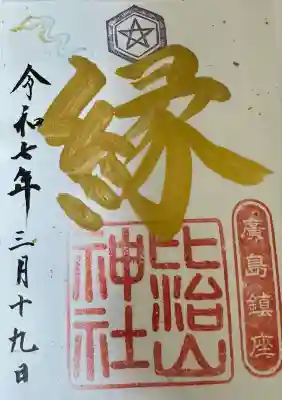 廣島鎮座
縁
比治山
神社
令和七年三月十九日